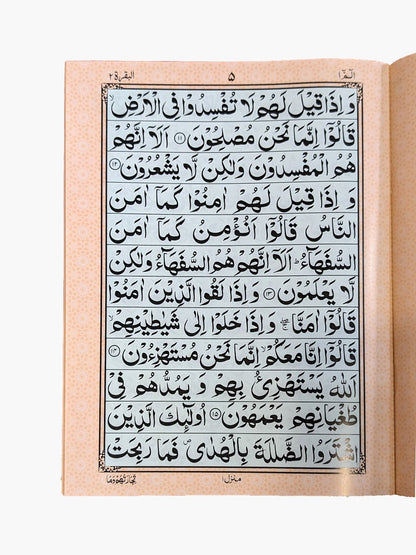 الٓمّٓ ١ ۵ البقرة ٢
وَ اِذَا قِيْلَ لَهُمْ لَا تُفْسِدُوْا فِي الْاَرْضِ ۙ
قَالُوْٓا اِنَّمَا نَحْنُ مُصْلِحُوْنَ ۝١١ اَلَآ اِنَّهُمْ
هُمُ الْمُفْسِدُوْنَ وَلٰكِنْ لَّا يَشْعُرُوْنَ ۝١٢
وَ اِذَا قِيْلَ لَهُمْ اٰمِنُوْا كَمَآ اٰمَنَ
النَّاسُ قَالُوْٓا اَنُؤْمِنُ كَمَآ اٰمَنَ
السُّفَهَآءُ ؕ اَلَآ اِنَّهُمْ هُمُ السُّفَهَآءُ وَلٰكِنْ
لَّا يَعْلَمُوْنَ ۝١٣ وَ اِذَا لَقُوا الَّذِيْنَ اٰمَنُوْا
قَالُوْٓا اٰمَنَّا ۖۚ وَ اِذَا خَلَوْا اِلٰى شَيٰطِيْنِهِمْ ۙ
قَالُوْٓا اِنَّا مَعَكُمْ ۙ اِنَّمَا نَحْنُ مُسْتَهْزِءُوْنَ ۝١٤
اَللّٰهُ يَسْتَهْزِئُ بِهِمْ وَ يَمُدُّهُمْ فِيْ
طُغْيَانِهِمْ يَعْمَهُوْنَ ۝١٥ اُولٰٓئِكَ الَّذِيْنَ
اشْتَرَوُا الضَّلٰلَةَ بِالْهُدٰى ۪ فَمَا رَبِحَتْ
منزل ١ تِّجَارَتُهُمْ وَمَا